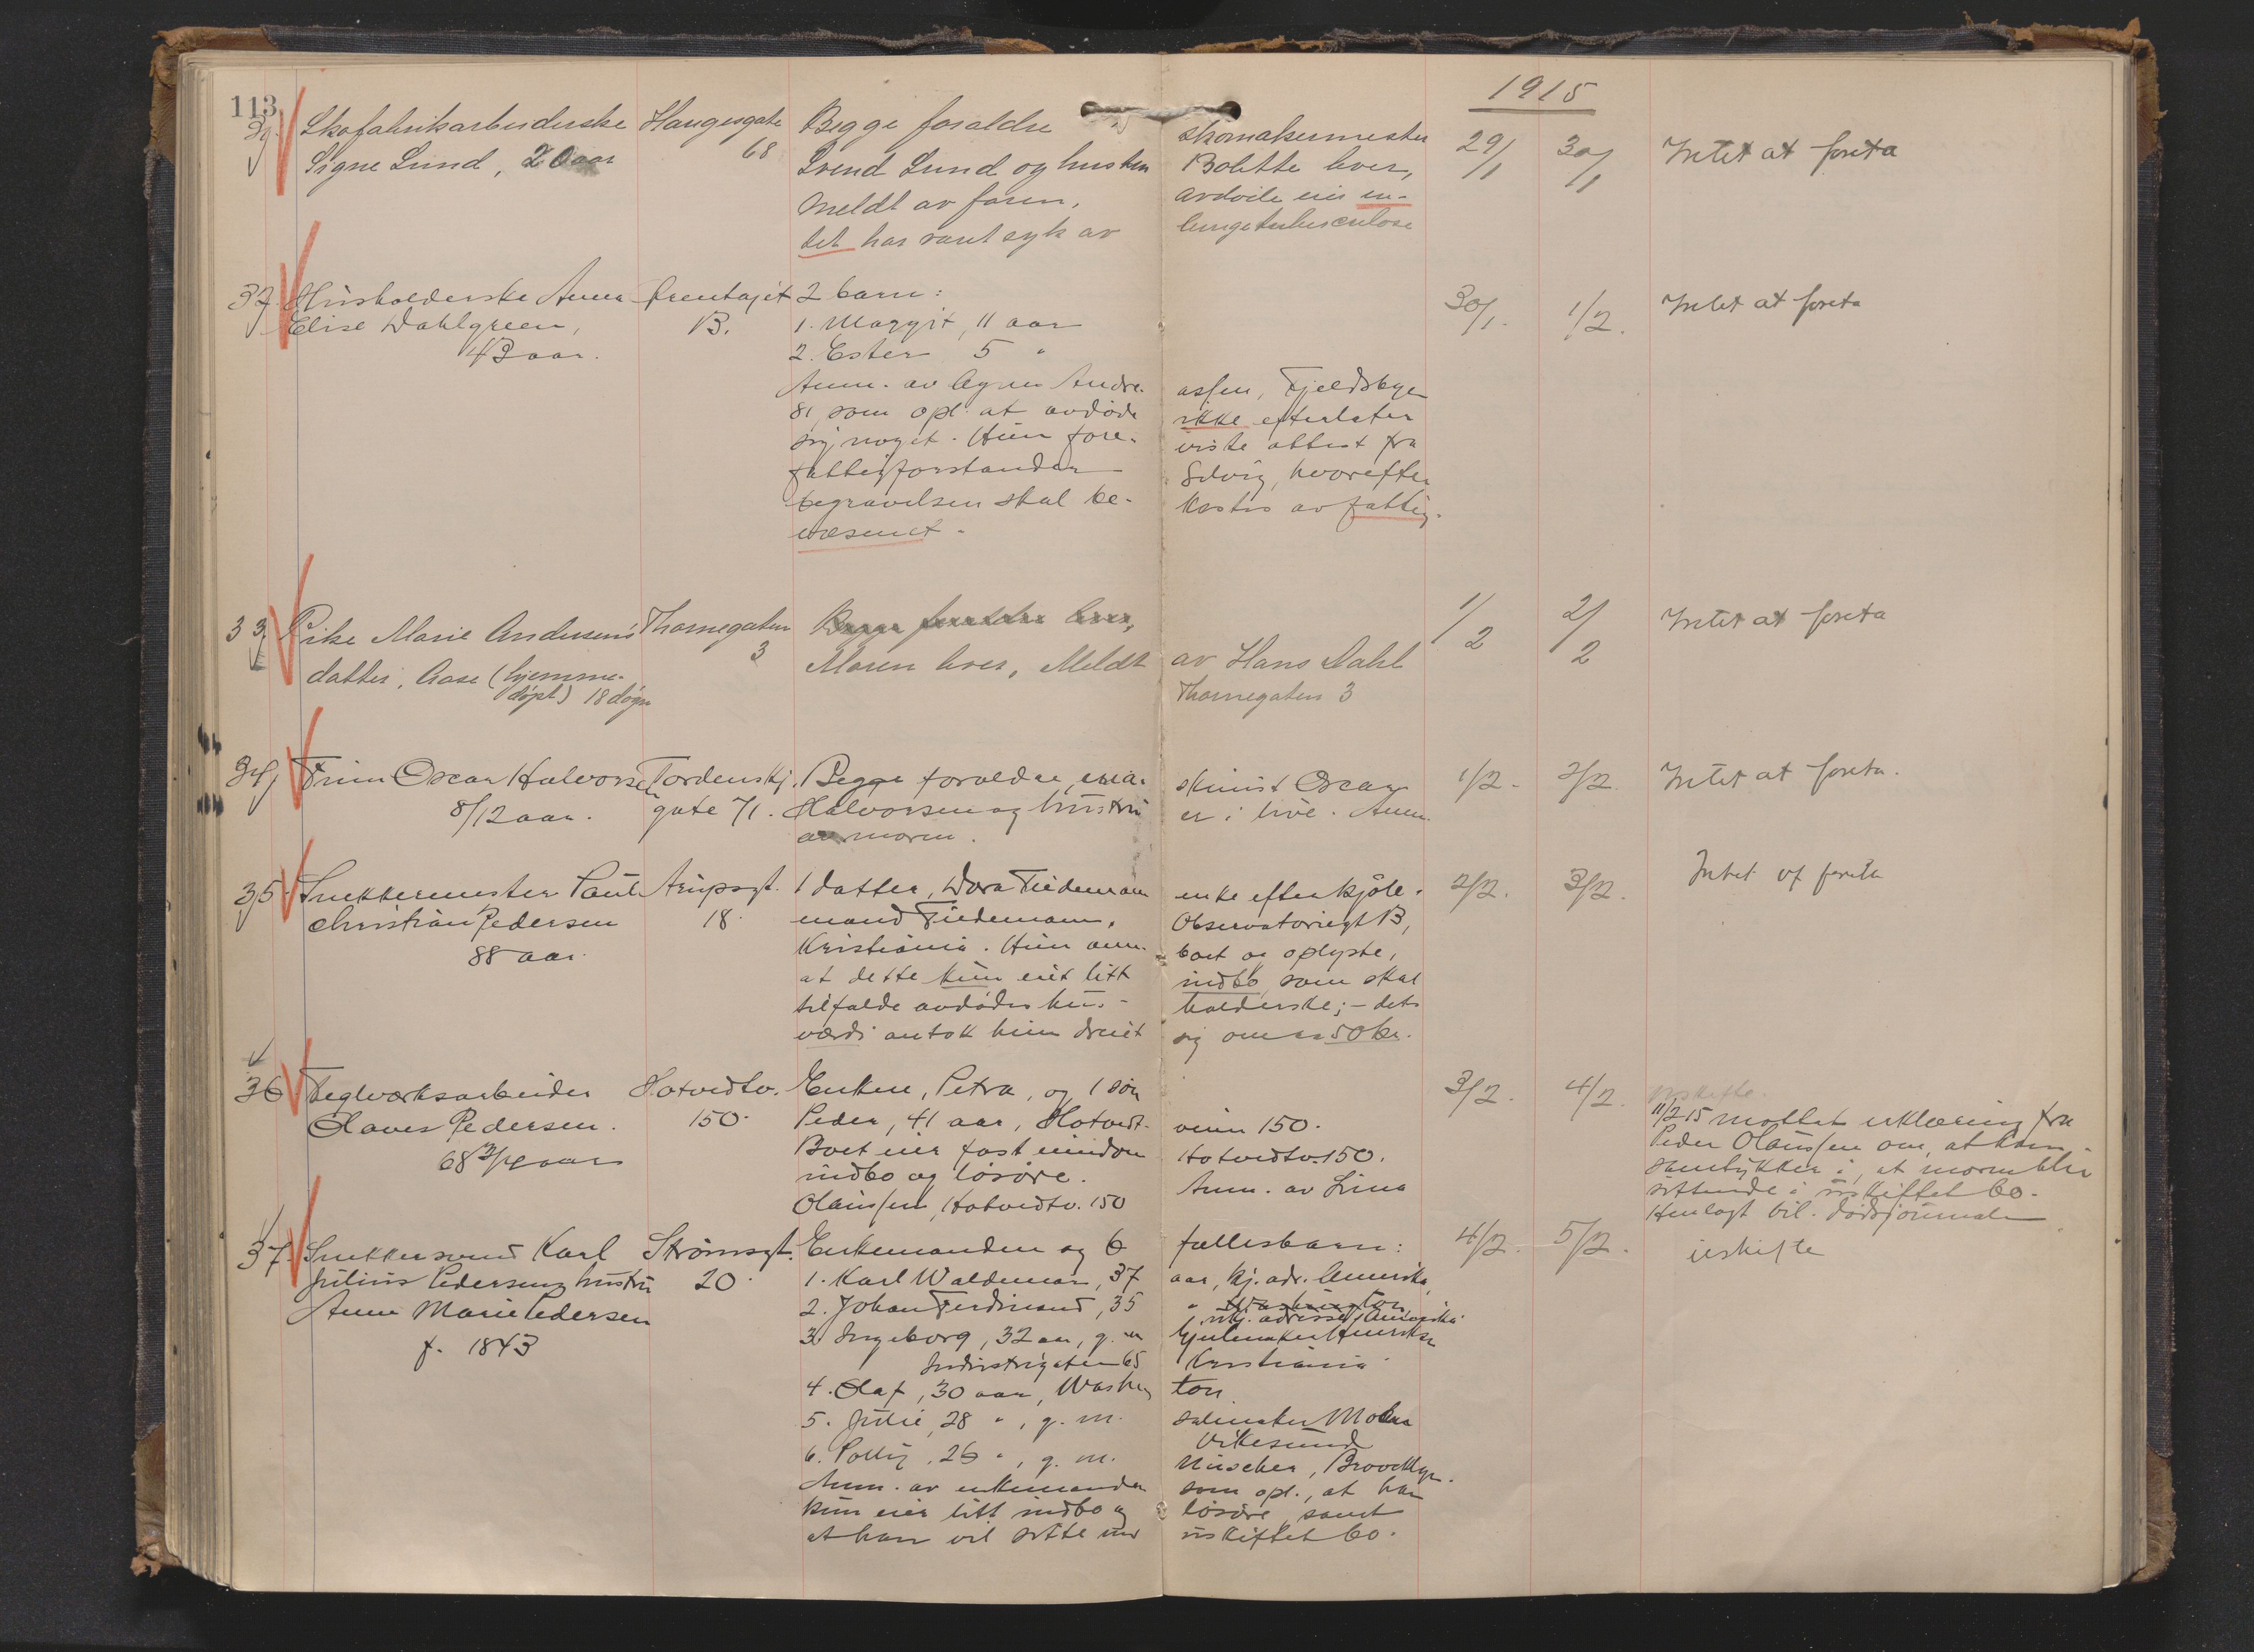 113
1915
Skofabrikarbeiderske
Signe Lund, 20 aar
Haugesgate
68
Begge forældre skomakermester
Svend Lund og hustru Bolette lever,
Meldt av faren, avdøde eier in-
tet har vært syk av lungetuberculose
29/1
30/1
Intet at foreta
32
Husholderske Anna
Elise Dahlgreen,
43 aar.
B.
2 barn:
1. Margit, 11 aar
2. Ester 5 "
Anm. av Agnes Andre- assen, Fjeldbye
81, som opl. at avdøde ikke efterlater
sig noget. Hun fore- viste attest fra
fattigforstander Selvig, hvorefter
begravelsen skal be- kostes av fattig-
væsenet.
30/1.
1/2.
Intet at foreta
33
Pike Marie Andersens
datter, Aase (hjemme-
døpt) 18 døgn
Thornegaten
3
Begge forældre lever,
Moren lever, Meldt av Hans Dahl
Thornegaten 3
1/2
2/2
Intet at foreta
34
Finn Oscar Halvorsen
8/12 aar.
Tordenskj.
gate 71.
Begge forældre, ma- skinist Oscar
Halvorsen og hustru er i live. Anm.
av moren.
1/2.
2/2
Intet at foreta.
35
Snekkermester Paul
Christian Pedersen
88 aar.
Arupsgt.
18.
1 datter, Dora Tiedemann enke efter kjøb-
mand Tiedemann, Observatoriegt B,
Kristiania. Hun anm. boet og oplyste,
at dette kun eiet litt indbo, som skal
tilfalde avdødes hus- holderske; - dets
værdi antok hun dreiet sig om ca 50 kr.
2/2.
3/2.
Intet at foreta
36
Teglverksarbeider
Olaves Pedersen.
68 3/4 aar
Hotvedtv.
150.
Enken, Petra, og 1 søn
Peder, 41 aar, Hotvedt- veien 150.
Boet eier fast eiendom Hotvedtv. 150.
indbo og løsøre. Anm. av Lina
Olaussen, Hotvedtv. 150
3/2.
4/2.
Uskifte.
11/2 15 mottat erklæring fra
Peder Olaussen om, at han
samtykker i, at moren blir
sittende i uskiftet bo.
Henlagt vil. dødsjournalen
37.
Snekkersvend Karl
Julius Pedersens hustru
Anne Marie Pedersen
f. 1843
Strømsgt.
20.
Enkemanden og 6 fællesbarn:
1. Karl Waldemar, 37 aar, kj. adr. Amerika,
2. Johan Ferdinand, 35 " Washington
ukj. adresse, Amerika
3. Ingeborg, 32 aar, g. m. Hjulmaker Henriksen
Industrigaten 65 Kristiania
4. Olaf, 30 aar, Washing ton.
5. Julie, 28 ", g. m. salmaker Moen
Vikesund
6. 26 ", g. m. Brooklyn.
Anm. av enkemanden som opl., at han
kun eier litt indbo og løsøre, samt
at han vil sitte i uskiftet bo.
4/2.
5/2.
uskifte